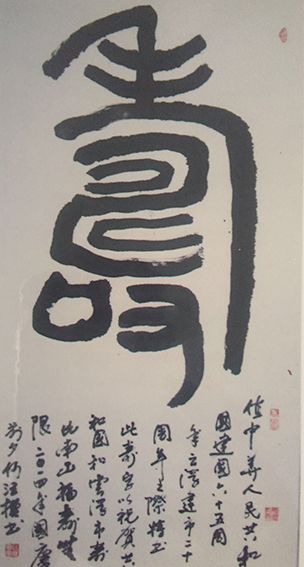 壽
值中華人民共和
國建國六十五周
年云浮建市二十
周年之際特书
此壽字以祝賀共
和國和雲浮市壽
比南山福壽無
限二〇一四年國慶
前夕 书